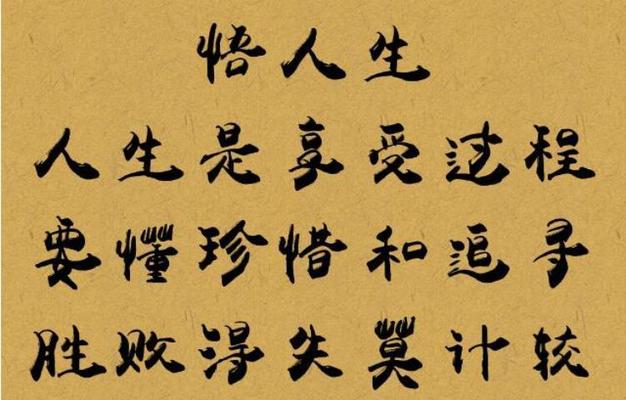 悟人生
人生是享受过程
要懂珍惜和追寻
胜败得失莫计较